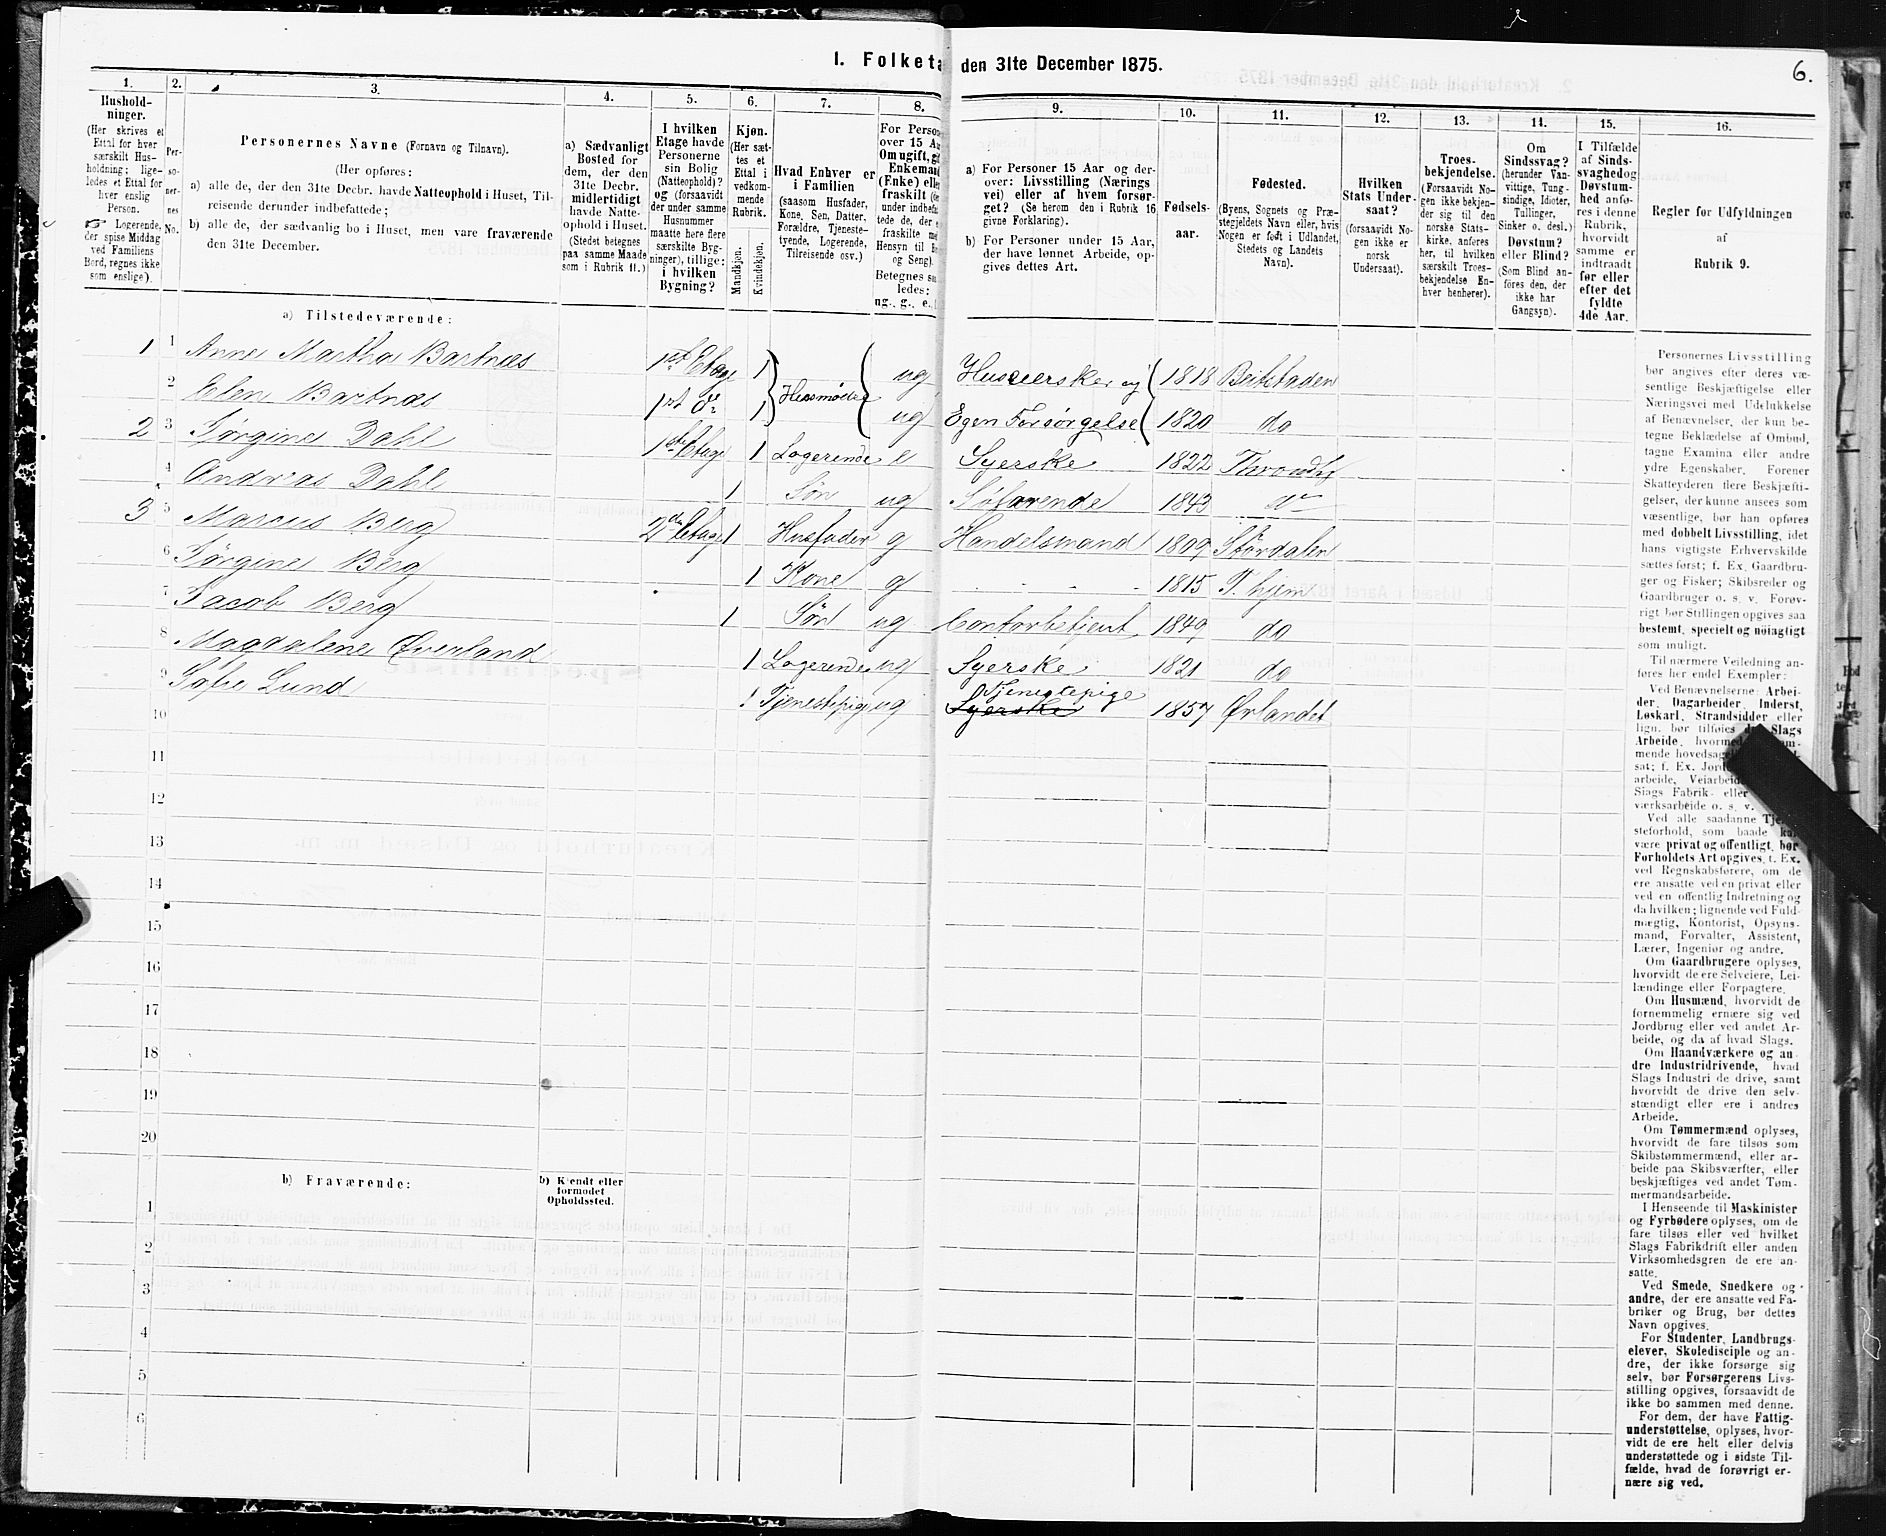 1. Folketæ den 31te December 1875.
6.
1.
Hushold-
ninger.
(Her skrives et
Ettal for hver
særskilt Hus-
holdning; lige-
ledes et Ettal for
hver enslig
Person.
Logerende,
der spise Middag
ved Familiens
Bord, regnes ikke
som enslige).
2.
Per-
so-
ner-
nes
No.
3.
Personernes Navne (Fornavn og Tilnavn).
(Her opføres:
a) alle de, der den 31te Decbr. havde Natteophold i Huset, Til-
reisende derunder indbefattede;
b) alle de, der sædvanlig bo i Huset, men vare fraværende
den 31te December.
4.
a) Sædvanligt
Bosted for
dem, der den
31te Decbr.
midlertidigt
havde Natte-
ophold i Huset.
(Stedet betegnes
paa samme Maade
som i Rubrik 11.)
5.
I hvilken
Etage havde
Personerne
sin Bolig
(Natteophold)?
og (forsaavidt
der under samme
Husnummer
maatte høre flere
særskilte Byg-
ninger), tillige:
i hvilken
Bygning?
6.
Kjøn.
(Her sæt-
tes et
Ettal i
vedkom-
mende
Rubrik.
Mandkjøn.
Kvindekjøn.
7.
Hvad Enhver er
i Familien
(saasom Husfader,
Kone, Søn, Datter,
Forældre, Tjeneste-
tyende, Logerende,
Tilreisende osv.)
8.
For Perso
over 15 Aa
Om ugift, gi
Enkemand
(Enke) elle
fraskilt
under indbefat
tede de, der e
fraskilte me
Hensyn til Bo
og Seng).
Betegnes saa
ledes:
ug., g., e.,
9.
a) For Personer 15 Aar og der-
over: Livsstilling (Nærings
vei) eller af hvem forsør-
get? (Se herom den i Rubrik 16
givne Forklaring).
b) For Personer under 15 Aar,
der have lønnet Arbeide, op-
gives dettes Art.
10.
Fødsels-
aar.
11.
Fødested.
(Byens, Sognets og Præ-
stegjeldets Navn eller, hvis
Nogen er født i Udlandet,
Stedets og Landets
Navn).
12.
Hvilken
Stats Under-
saat?
(forsaavidt No-
gen ikke er
norsk
Undersaat).
13.
Troes-
bekjendelse.
(Forsaavidt No-
gen ikke bekjen-
der sig til den
norske Stats-
kirke, anføres
her, til hvilken
særskilt Troes-
bekjendelse En-
hver henhører).
14.
Om
Sindssvag?
(herunder Van-
vittige, Tung-
sindige, Idioter,
Tullinger,
Sinker o. desl.)
Døvstum?
eller Blind?
(Som Blind an-
føres den, der
ikke har
Gangsyn).
15.
I Tilfælde
af Sinds-
svaghed og
Døvstum-
hed anfø-
res i denne
Rubrik,
hvorvidt
samme er
indtraadt
før eller
efter det
fyldte
4de Aar.
16.
Regler for Udfyldningen
af
Rubrik 9.
a) Tilstedeværende:
1 1 Anne Martha Bartnæs 1st Etage 1 Husmødre ug Huseierske og 1818 Beitstaden
2 Elen Bartnæs 1st do 1 ug Egen Forsørgelse 1820 do
2 3 Jørgine Dahl 1ste Etage 1 Logerende e Syerske 1822 Trondhj
4 Andreas Dahl 1 Søn ug Søfarende 1843 do
3 5 Marcus Berg 2den Etage 1 Husfader g Handelsmand 1809 Størdalen
6 Jørgine Berg 1 Kone g 1815 T.hjem
7 Jacob Berg 1 Søn ug Contorbetjent 1849 do
8 Magdalene Øverland 1 Logerende ug Syerske 1821 do
9 Sofie Lund 1 Tjenestepige ug Syerske Tjenestepige 1857 Ørlandet
10
11
12
13
14
15
16
17
18
19
20
b) Fraværende:
b) Kjendt eller
formodet
Opholdssted.
1
2
3
4
5
6
Personernes Livsstilling
bør angives efter deres væ-
sentlige Beskjæftigelse eller
Næringsvei med Udelukkelse
af Benævnelser, der kun be-
tegne Beklædelse af Ombud,
tagne Examina eller andre
ydre Egenskaber. Forener
Skatteyderen flere Beskjæfti-
gelser, der kunne ansees som
væsentlige, bør han opføres
med dobbelt Livsstilling, idet
hans vigtigste Erhvervskilde
sættes først; f. Ex. Gaardbru-
ger og Fisker; Skibsreder og
Gaardbruger o. s. v. Forøv-
rigt bør Stillingen opgives saa
bestemt, specielt og nøiagtigt
som muligt.
Til nærmere Veiledning an-
føres her endel Exempler:
Ved Benævnelserne: Arbei-
der, Dagarbeider, Inderst,
Løskarl, Strandsidder eller
lign. bør tilføies det Slags
Arbeide, hvormed
mende hovedsage
sat; f. Ex. Jord
arbeide, Veiarbeid
Slags Fabrik- eller
værksarbeide o. s. v.
Ved alle saadanne Tje
steforhold, som baade kan
være privat og offentligt, bør
Forholdets Art opgives, t. Ex.
ved Regnskabsførere, om de
ere ansatte ved en privat eller
ved en offentlig Indretning og
da hvilken; lignende ved Fuld-
mægtig, Kontorist, Opsyns-
mand, Forvalter, Assistent,
Lærer, Ingeniør og andre.
Om Gaardbrugere oplyses,
hvorvidt de ere Selveiere, Lei-
lændinge eller Forpagtere.
Om Husmænd, hvorvidt de
fornemmelig ernære sig ved
Jordbrug eller ved andet Ar-
beide, og da af hvad Slags.
Om Haandværkere og an-
dre Industridrivende, hvad
Slags Industri de drive, samt
hvorvidt de drive den selv-
stændigt eller ere i andres
Arbeide.
Om Tømmermænd oplyses,
hvorvidt de fare tilsøs som
Skibstømmermænd, eller ar-
beide paa Skibsværfter, eller
beskjæftiges ved andet Tøm-
mermandsarbeide.
I Henseende til Maskinister
og Fyrbødere oplyses, om de
fare tilsøs eller ved hvilket
Slags Fabrikdrift eller anden
Virksomhedsgren de ere an-
satte.
Ved Smede, Snedkere og
andre, der ere ansatte ved Fa-
briker og Brug, bør dettes
Navn opgives.
For Studenter, Landbrugs-
elever, Skoledisciple og an-
dre, der ikke forsørge sig
selv, bør Forsørgerens Livs-
stilling opgives, forsaavidt de
ikke bo sammen med denne.
For dem, der have Fattig-
understøttelse, oplyses, hvor-
vidt de ere helt eller delvis
understøttede og i sidste Til-
fælde, hvad de forøvrigt er-
nære sig ved.